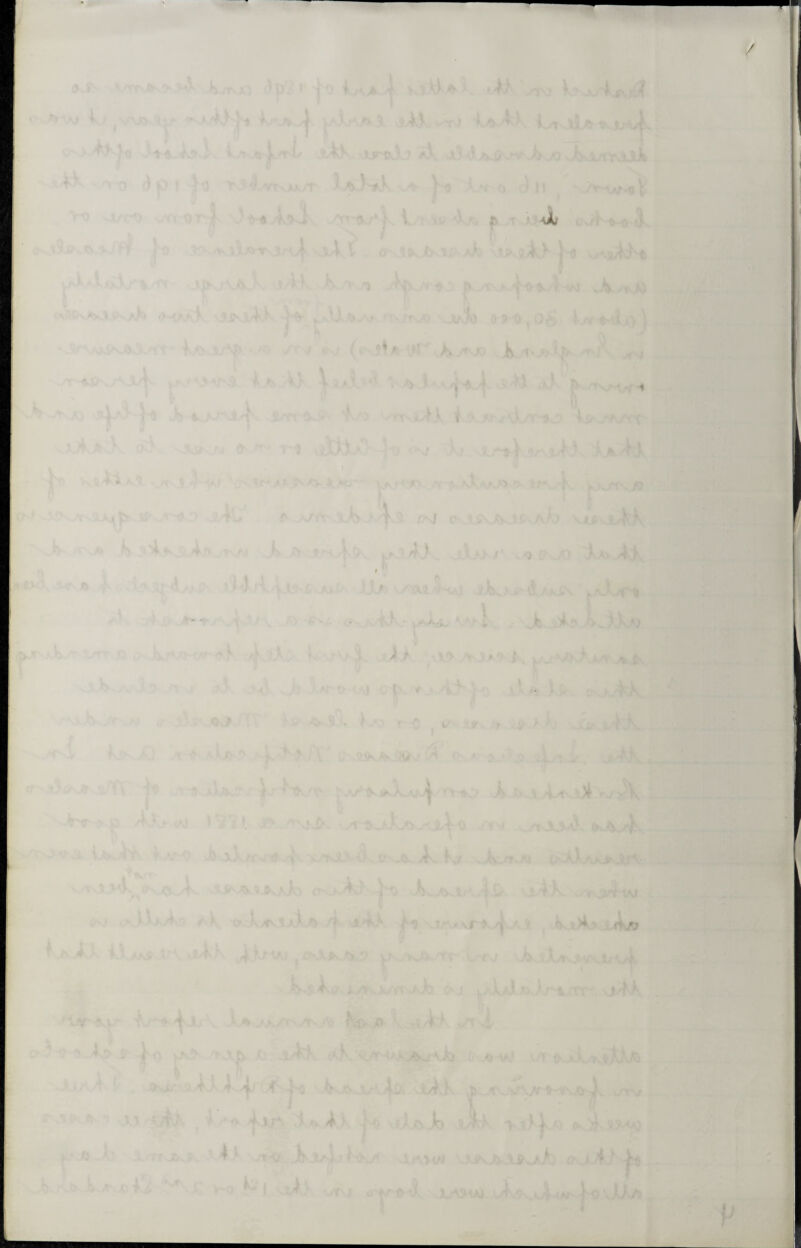 District in the latter part of 1896 and became so
prevalent that in the early part of this year, it was
deemed advisable to close the Infant School of this
Town, 116 out of a total number of 196 on the
books being absent from School from one or
other of these diseases. The prevalence of Measles
and whooping cough and the large mortality
(about 20,000 die annually of these two diseases
in England and Wales) is in a great measure
owing to the popular belief that every person
must contract them at some period of life and
that therefore it is of little or no use to take
any precautionary measures when either of
these diseases is epidemic. The consequence is
that as a rule they spread unchecked and
only subside when all susceptible subjects have been
attacked. Surely this is a reproach to
sanitary science; the first step towards amending
this state of things would be to include
these diseases, or at least Measles under
the Infectious Diseases Notification Act. In
Birkenhead compulsory notification of Measles
has been in operation since 1881 with good
results and it has been pointed out that even
when the spread of this disease has not been
checked, exposure of the patients to chills is
prevented in many cases, with the result that
the mortality is diminished
In the last annual report your
attention was drawn to the agency of schools
in favouring the spread of Diphtheria. Three
weeks after the date of that report, three cases
of this disease were notified on the same day
all of which were boys in the 1st or 2nd Standard
4